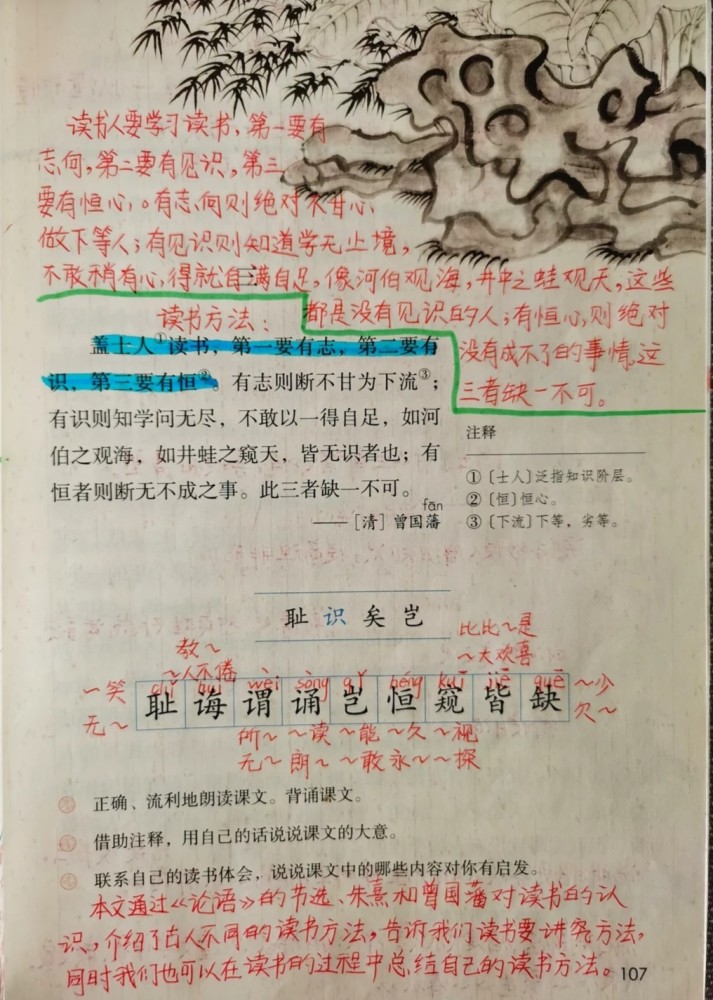 读书人要学习读书,第一要有
志向,第二要有见识,第三
要有恒心。有志向则绝对不甘心
做下等人;有见识则知道学无止境,
不敢稍有心得就自满自足,像河伯观海,井中之蛙观天,这些
都是没有见识的人;有恒心,则绝对
没有成不了的事情。这
三者缺一不可。
读书方法:
盖士人①读书,第一要有志,第二要有
识,第三要有恒②。有志则断不甘为下流③;
有识则知学问无尽,不敢以一得自足,如河
伯之观海,如井蛙之窥天,皆无识者也;有
恒者则断无不成之事。此三者缺一不可。
fān
——[清]曾国藩
注释
①〔士人〕泛指知识阶层。
②〔恒〕恒心。
③〔下流〕下等,劣等。
耻 识 矣 岂
教~
~人不倦
比比~是
~大欢喜
~笑 chǐ huǐ wèi sòng qǐ héng kuī jiē quē ~少
无~ 耻 诲 谓 诵 岂 恒 窥 皆 缺 欠~
所~ ~读 ~能 ~久 ~视
无~ 朗~ ~敢 永~ ~探
正确、流利地朗读课文。背诵课文。
借助注释,用自己的话说说课文的大意。
联系自己的读书体会,说说课文中的哪些内容对你有启发。
本文通过《论语》的节选、朱熹和曾国藩对读书的认
识,介绍了古人不同的读书方法,告诉我们读书要讲究方法,
同时我们也可以在读书的过程中总结自己的读书方法。
107